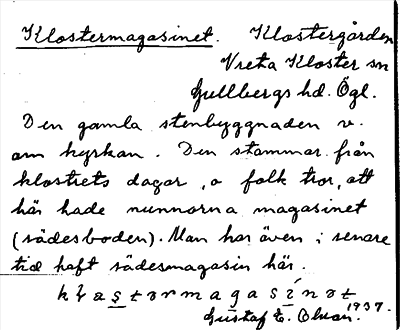 Klostermagasinet. Klostergården
Vreta Kloster sn
Gullbergs hd. Ögl.
Den gamla stenbyggnaden v.
om kyrkan. Den stammar från
klostrets dagar, o folk tror, att
här hade nunnorna magasinet
(sädesboden). Man har även i senare
tid haft sädesmagasin här.
klastərmagasínət
1937.
Gustaf E. Olsson.